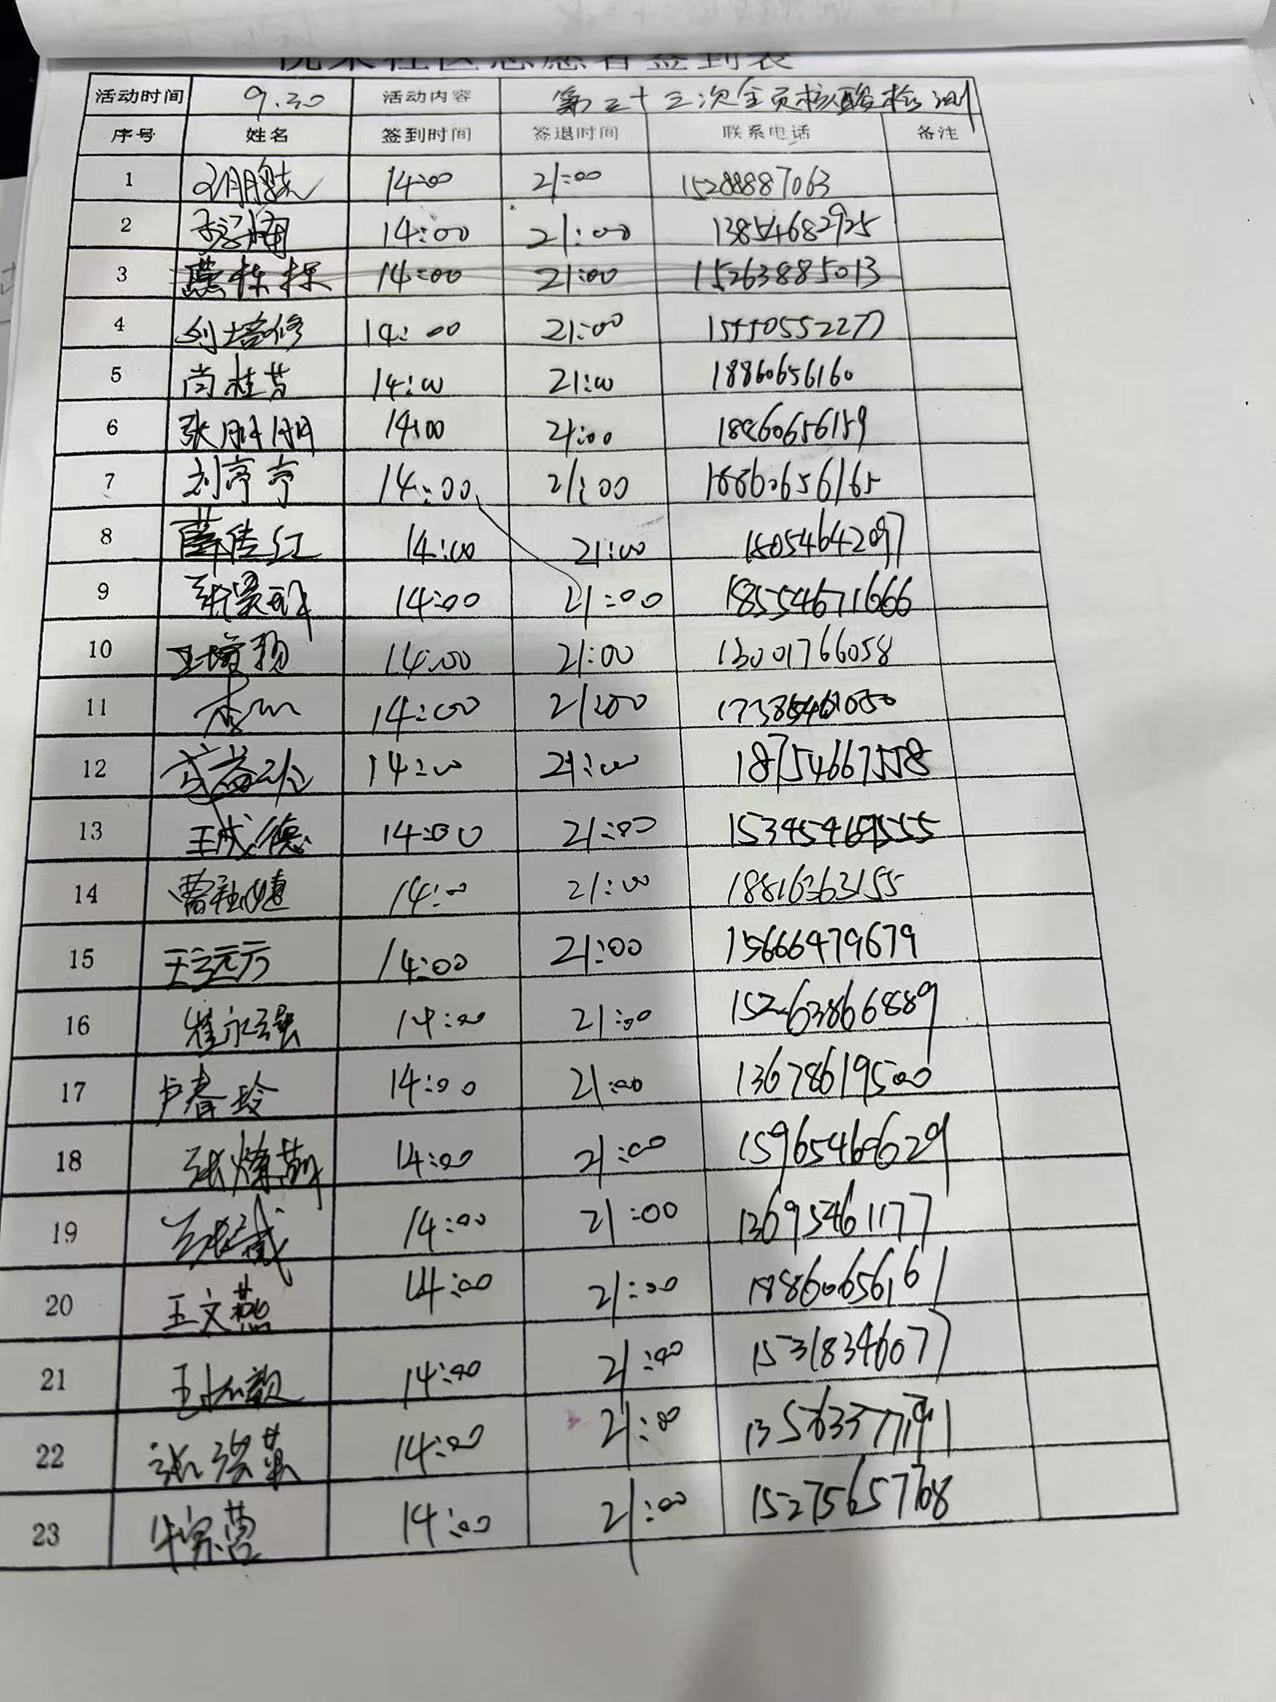 社区志愿者签到表
活动时间 9.30 活动内容 第三十三次全员核酸检测
序号 姓名 签到时间 签退时间 联系电话 备注
1 14:00 21:00 15288887063
2 14:00 21:00 13854682925
3 14:00 21:00 15263885013
4 刘培修 14:00 21:00 15550552277
5 尚桂芳 14:00 21:00 18860656160
6 张月明 14:00 21:00 18860656159
7 刘亭亭 14:00 21:00 18860656165
8 薛传红 14:00 21:00 15054642097
9 14:00 21:00 18554671666
10 14:00 21:00 13001766058
11 14:00 21:00
12 14:00 21:00 18754667558
13 王成德 14:00 21:00 15345469555
14 14:00 21:00 18816363155
15 王远方 14:00 21:00 15666479679
16 崔永强 14:00 21:00 15263866889
17 卢春玲 14:00 21:00 13678619500
18 14:00 21:00 15965460629
19 14:00 21:00 13695461177
20 王文燕 14:00 21:00 18860656161
21 14:00 21:00 15318346077
22 14:00 21:00
23 14:00 21:00 15275657708